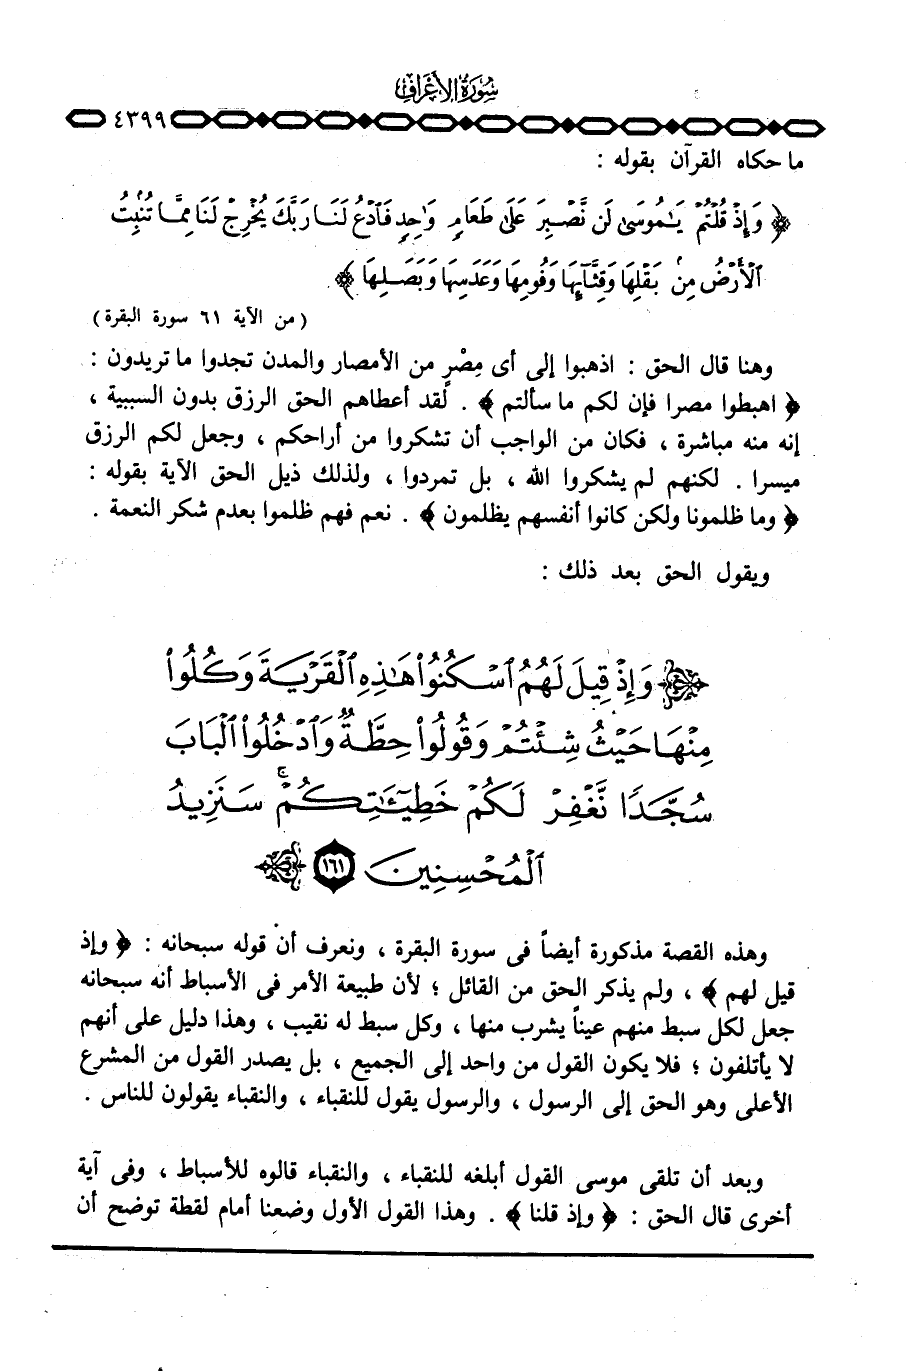 سُورَةُ الأَعْرَافِ
٤٣٩٩
ما حكاه القرآن بقوله :
﴿ وَإِذْ قُلْتُمْ يَـٰمُوسَىٰ لَن نَّصْبِرَ عَلَىٰ طَعَامٍ وَاحِدٍ فَٱدْعُ لَنَا رَبَّكَ يُخْرِجْ لَنَا مِمَّا تُنۢبِتُ
ٱلْأَرْضُ مِنۢ بَقْلِهَا وَقِثَّآئِهَا وَفُومِهَا وَعَدَسِهَا وَبَصَلِهَا ﴾
( من الآية ٦١ سورة البقرة )
وهنا قال الحق : اذهبوا إلى أى مِصْرٍ من الأمصار والمدن تجدوا ما تريدون :
﴿ اهبطوا مصرا فإن لكم ما سألتم ﴾ . لقد أعطاهم الحق الرزق بدون السببية ،
إنه منه مباشرة ، فكان من الواجب أن تشكروا من أراحكم ، وجعل لكم الرزق
ميسرا . لكنهم لم يشكروا الله ، بل تمردوا ، ولذلك ذيل الحق الآية بقوله :
﴿ وما ظلمونا ولكن كانوا أنفسهم يظلمون ﴾ . نعم فهم ظلموا بعدم شكر النعمة .
ويقول الحق بعد ذلك :
﴿ وَإِذْ قِيلَ لَهُمُ ٱسْكُنُوا۟ هَـٰذِهِ ٱلْقَرْيَةَ وَكُلُوا۟
مِنْهَا حَيْثُ شِئْتُمْ وَقُولُوا۟ حِطَّةٌ وَٱدْخُلُوا۟ ٱلْبَابَ
سُجَّدًا نَّغْفِرْ لَكُمْ خَطِيٓـَٔـٰتِكُمْ ۚ سَنَزِيدُ
ٱلْمُحْسِنِينَ ١٦١ ﴾
وهذه القصة مذكورة أيضاً فى سورة البقرة ، ونعرف أن قوله سبحانه : ﴿ وإذ
قيل لهم ﴾ ، ولم يذكر الحق من القائل ؛ لأن طبيعة الأمر فى الأسباط أنه سبحانه
جعل لكل سبط منهم عيناً يشرب منها ، وكل سبط له نقيب ، وهذا دليل على أنهم
لا يأتلفون ؛ فلا يكون القول من واحد إلى الجميع ، بل يصدر القول من المشرع
الأعلى وهو الحق إلى الرسول ، والرسول يقول للنقباء ، والنقباء يقولون للناس .
وبعد أن تلقى موسى القول أبلغه للنقباء ، والنقباء قالوه للأسباط ، وفى آية
أخرى قال الحق : ﴿ وإذ قلنا ﴾ . وهذا القول الأول وضعنا أمام لقطة توضح أن